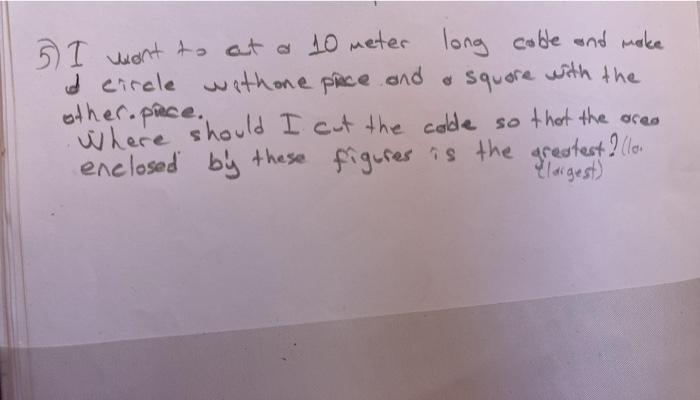 5) I want to at a 10 meter long cable and make
a circle with one piece and a square with the
other piece.
Where should I cut the cable so that the area
enclosed by these figures is the greatest? (la.
(largest)